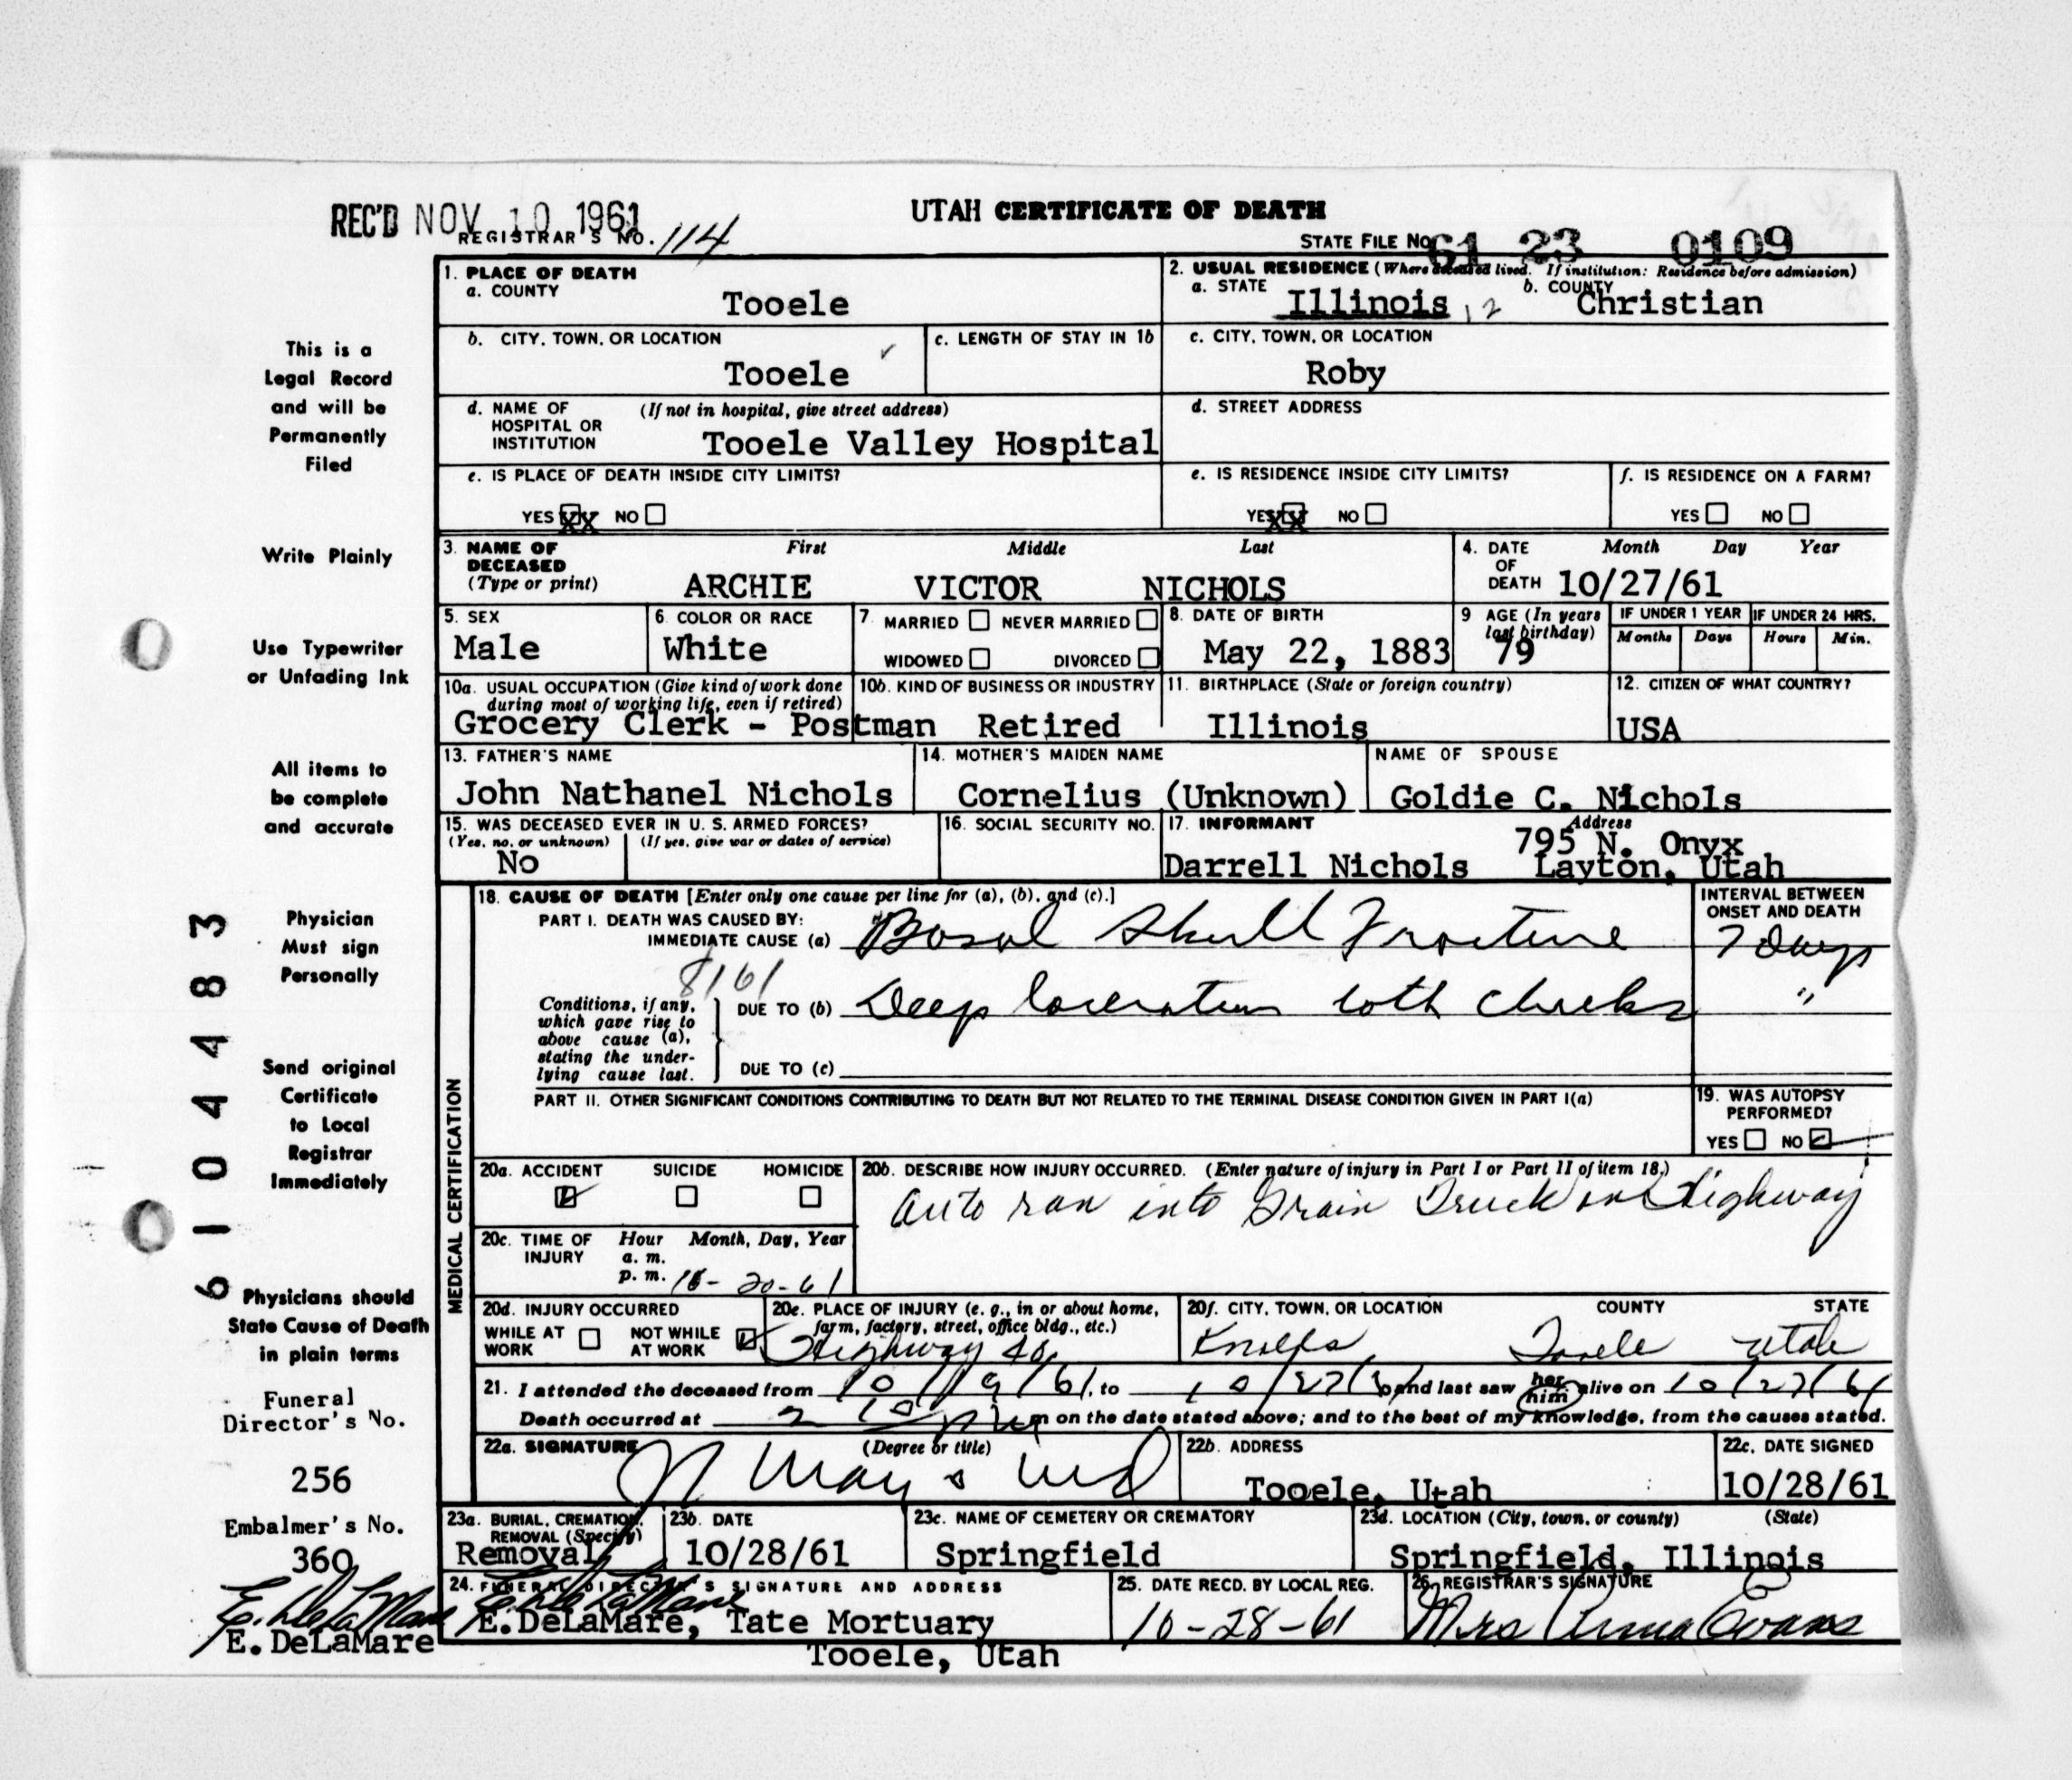 REC'D NOV 10 1961
UTAH CERTIFICATE OF DEATH
REGISTRAR'S NO. 114
STATE FILE NO. 61 23 0109
1. PLACE OF DEATH
a. COUNTY
Tooele
2. USUAL RESIDENCE (Where deceased lived. If institution: Residence before admission)
a. STATE Illinois 12 b. COUNTY Christian
b. CITY, TOWN, OR LOCATION
Tooele
c. LENGTH OF STAY IN 1b
c. CITY, TOWN, OR LOCATION
Roby
d. NAME OF HOSPITAL OR INSTITUTION (If not in hospital, give street address)
Tooele Valley Hospital
d. STREET ADDRESS
e. IS PLACE OF DEATH INSIDE CITY LIMITS?
YES XX NO
e. IS RESIDENCE INSIDE CITY LIMITS?
YES XX NO
f. IS RESIDENCE ON A FARM?
YES NO
3. NAME OF DECEASED (Type or print)
First Middle Last
ARCHIE VICTOR NICHOLS
4. DATE OF DEATH Month Day Year
10/27/61
5. SEX
Male
6. COLOR OR RACE
White
7 MARRIED NEVER MARRIED
WIDOWED DIVORCED
8. DATE OF BIRTH
May 22, 1883
9 AGE (In years last birthday)
79
IF UNDER 1 YEAR
Months Days
IF UNDER 24 HRS.
Hours Min.
10a. USUAL OCCUPATION (Give kind of work done during most of working life, even if retired)
10b. KIND OF BUSINESS OR INDUSTRY
Grocery Clerk - Postman Retired
11. BIRTHPLACE (State or foreign country)
Illinois
12. CITIZEN OF WHAT COUNTRY?
USA
13. FATHER'S NAME
John Nathanel Nichols
14. MOTHER'S MAIDEN NAME
Cornelius (Unknown)
NAME OF SPOUSE
Goldie C. Nichols
15. WAS DECEASED EVER IN U. S. ARMED FORCES?
(Yes, no, or unknown) (If yes, give war or dates of service)
No
16. SOCIAL SECURITY NO.
17. INFORMANT Address
795 N. Onyx
Darrell Nichols Layton, Utah
MEDICAL CERTIFICATION
18. CAUSE OF DEATH [Enter only one cause per line for (a), (b), and (c).]
INTERVAL BETWEEN ONSET AND DEATH
PART I. DEATH WAS CAUSED BY:
IMMEDIATE CAUSE (a) Basal Skull Fracture 7 Days
8161
Conditions, if any, which gave rise to above cause (a), stating the underlying cause last.
DUE TO (b) Deep laceration both cheeks "
DUE TO (c)
PART II. OTHER SIGNIFICANT CONDITIONS CONTRIBUTING TO DEATH BUT NOT RELATED TO THE TERMINAL DISEASE CONDITION GIVEN IN PART I(a)
19. WAS AUTOPSY PERFORMED?
YES NO
20a. ACCIDENT SUICIDE HOMICIDE
20b. DESCRIBE HOW INJURY OCCURRED. (Enter nature of injury in Part I or Part II of item 18.)
Auto ran into Grain Truck on Highway
20c. TIME OF INJURY Hour Month, Day, Year
a. m.
p. m. 10-20-61
20d. INJURY OCCURRED
WHILE AT WORK NOT WHILE AT WORK
20e. PLACE OF INJURY (e. g., in or about home, farm, factory, street, office bldg., etc.)
Highway 40
20f. CITY, TOWN, OR LOCATION COUNTY STATE
Knolls Tooele Utah
21. I attended the deceased from 10/19/61, to 10/27/61 and last saw her him alive on 10/27/61
Death occurred at 2 10 pm m on the date stated above; and to the best of my knowledge, from the causes stated.
22a. SIGNATURE (Degree or title)
22b. ADDRESS
Tooele, Utah
22c. DATE SIGNED
10/28/61
23a. BURIAL, CREMATION, REMOVAL (Specify)
Removal
23b. DATE
10/28/61
23c. NAME OF CEMETERY OR CREMATORY
Springfield
23d. LOCATION (City, town, or county) (State)
Springfield, Illinois
24. FUNERAL DIRECTOR'S SIGNATURE AND ADDRESS
E. DeLaMare
E.DeLaMare, Tate Mortuary
Tooele, Utah
25. DATE RECD. BY LOCAL REG.
10-28-61
26. REGISTRAR'S SIGNATURE
Mrs Anna Evans
This is a
Legal Record
and will be
Permanently
Filed
Write Plainly
Use Typewriter
or Unfading Ink
All items to
be complete
and accurate
Physician
Must sign
Personally
Send original
Certificate
to Local
Registrar
Immediately
Physicians should
State Cause of Death
in plain terms
Funeral
Director's No.
256
Embalmer's No.
360
E. DeLaMare
E. DeLaMare
6104483